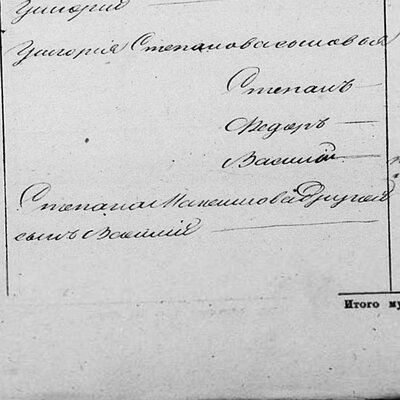 Григорий
Григорія Степанова сыновья
Степанъ
Федоръ
Василій
Степана Максимова другой
сынъ Василій
Итого му